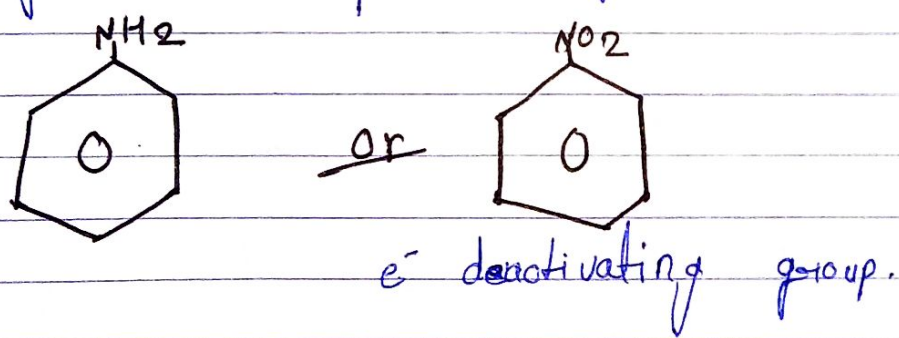 NH2 NO2
O or O
e⁻ deactivating group.